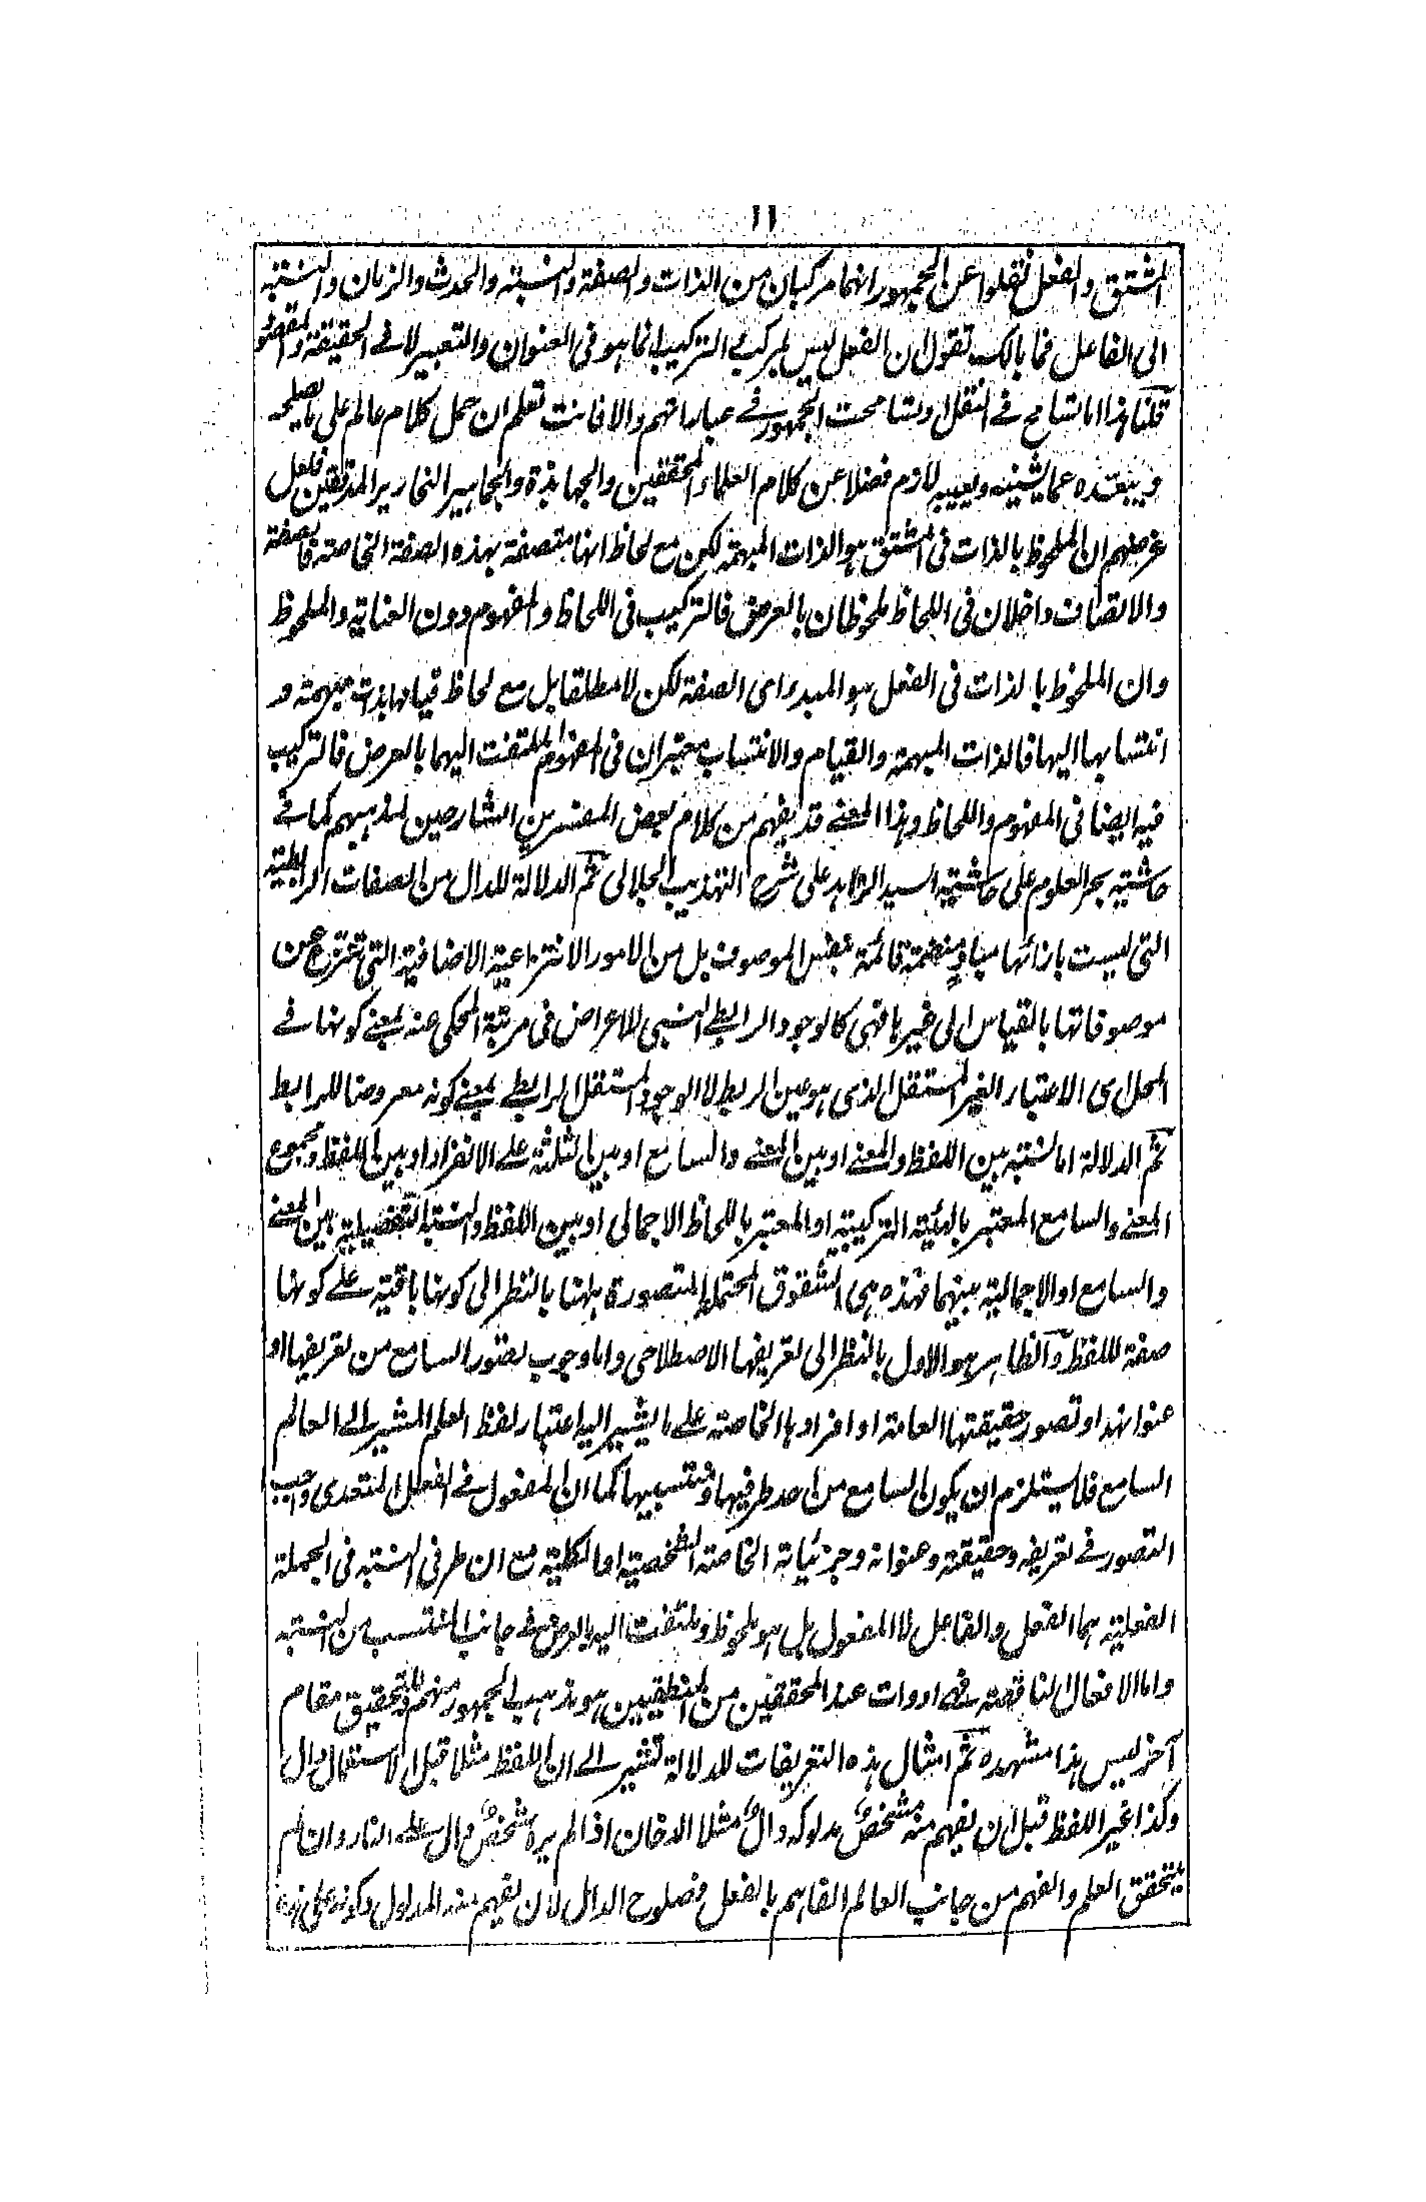 ١١
المشتق والفعل نقلوا عن الجمهور انهما مركبان من الذات والصفة والنسبة والحدث والزمان والنسبة
الى الفاعل فما بالك تقول ان الفعل ليس بمركب التركيب انما هو فى العنوان والتعبير لا فے الحقيقة والمقصود
قلنا هذا اما تسامح فے النقل او تسامحت الجمهور فے عباراتهم والا فانت تعلم ان حمل كلام عالم على ما يصلحه
ويبعده عما يشينه ويعيبه لازم فضلا عن كلام العلماء المحققين والجهابذة والجماهير النحارير المدققين فلعل
غرضهم ان الملحوظ بالذات فى المشتق هو الذات المبهمة لكن مع لحاظ انها متصفة بهذه الصفة الخاصة فالصفة
والاتصاف داخلان فى اللحاظ ملحوظان بالعرض فالتركيب فى اللحاظ والمفهوم دون العناية والملحوظ
وان الملحوظ بالذات فى الفعل هو المبدء اى الصفة لكن لا مطلقا بل مع لحاظ قيامها بذات مبهمة و
انتسابها اليها فالذات المبهمة والقيام والانتساب معتبران فى المفهوم الملتفت اليهما بالعرض فالتركيب
فيه ايضا فى المفهوم واللحاظ وهذا المعنے قد يفهم من كلام بعض المفسرين الشارحين لمذهبهم كما فے
حاشية بحر العلوم على حاشية السيد الزاهد على شرح التهذيب الجلالى ثم الدلالة للدال من الصفات الرابطية
التى ليست بازائها مباد منضمة قائمة بنفس الموصوف بل من الامور الانتزاعية الاضافية التى تنتزع من
موصوفاتها بالقياس الى غيرها فهى كالوجود الرابطے النسبى للاعراض فى مرتبة المحكى عنه بمعنے كونها فے
المحل اى الاعتبار الغير المستقل الذى هو عين الربط لا الوجود المستقل الرابطے بمعنے كونه معروضا للرابط
ثم الدلالة اما نسبة بين اللفظ والمعنے او بين المعنے والسامع او بين الثلثة علے الانفراد او بين اللفظ ومجموع
المعنے والسامع المعتبر بالهيئة التركيبية او المعتبر باللحاظ الاجمالى او بين اللفظ والنسبة التفصيلية بين المعنے
والسامع او الاجمالية بينهما فهذه هى الشقوق المحتملة المتصورة ههنا بالنظر الى كونها باقية علے كونها
صفة للفظ والظاهر هو الاول بالنظر الى تعريفها الاصطلاحى واما وجوب تصور السامع من تعريفها او
عنوانها او تصور حقيقتها العامة او افرادها الخاصة علے ما يشير اليه اعتبار لفظ العلم المشير الے العالم
السامع فلا يستلزم ان يكون السامع من احد طرفيها ومنتسبيها كما ان المفعول فے الفعل المتعدى واجب
التصور فے تعريفه وحقيقته وعنوانه وجزئياته الخاصة الشخصية او الكلية مع ان طرفى النسبة فى الجملة
الفعلية هما الفعل والفاعل لا المفعول بل هو ملحوظ وملتفت اليه بالعرض فے جانب المنتسب من النسبة
واما الافعال الناقصة فهى ادوات عند المحققين من المنطقيين هو مذهب الجمهور منهم وللتحقيق مقام
آخر ليس هذا مشهده ثم امثال هذه التعريفات للدلالة تشير الے ان اللفظ مثلا قبل الاستعمال دال
وكذا غير اللفظ قبل ان يفهم منه شخص مدلوله دال مثلا الدخان اذا لم يره شخص دال علے النار وان لم
يتحقق العلم والفهم من جانب العالم الفاهم بالفعل فصلوح الدال لان يفهم منه المدلول وكونه على هذه